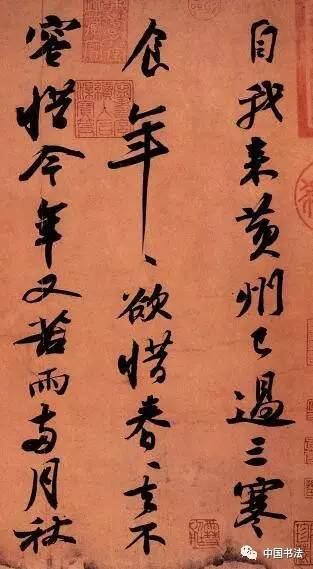 自我来黄州已過三寒
食年〻欲惜春〻去不
容惜今年又苦雨兩月秋
中国书法